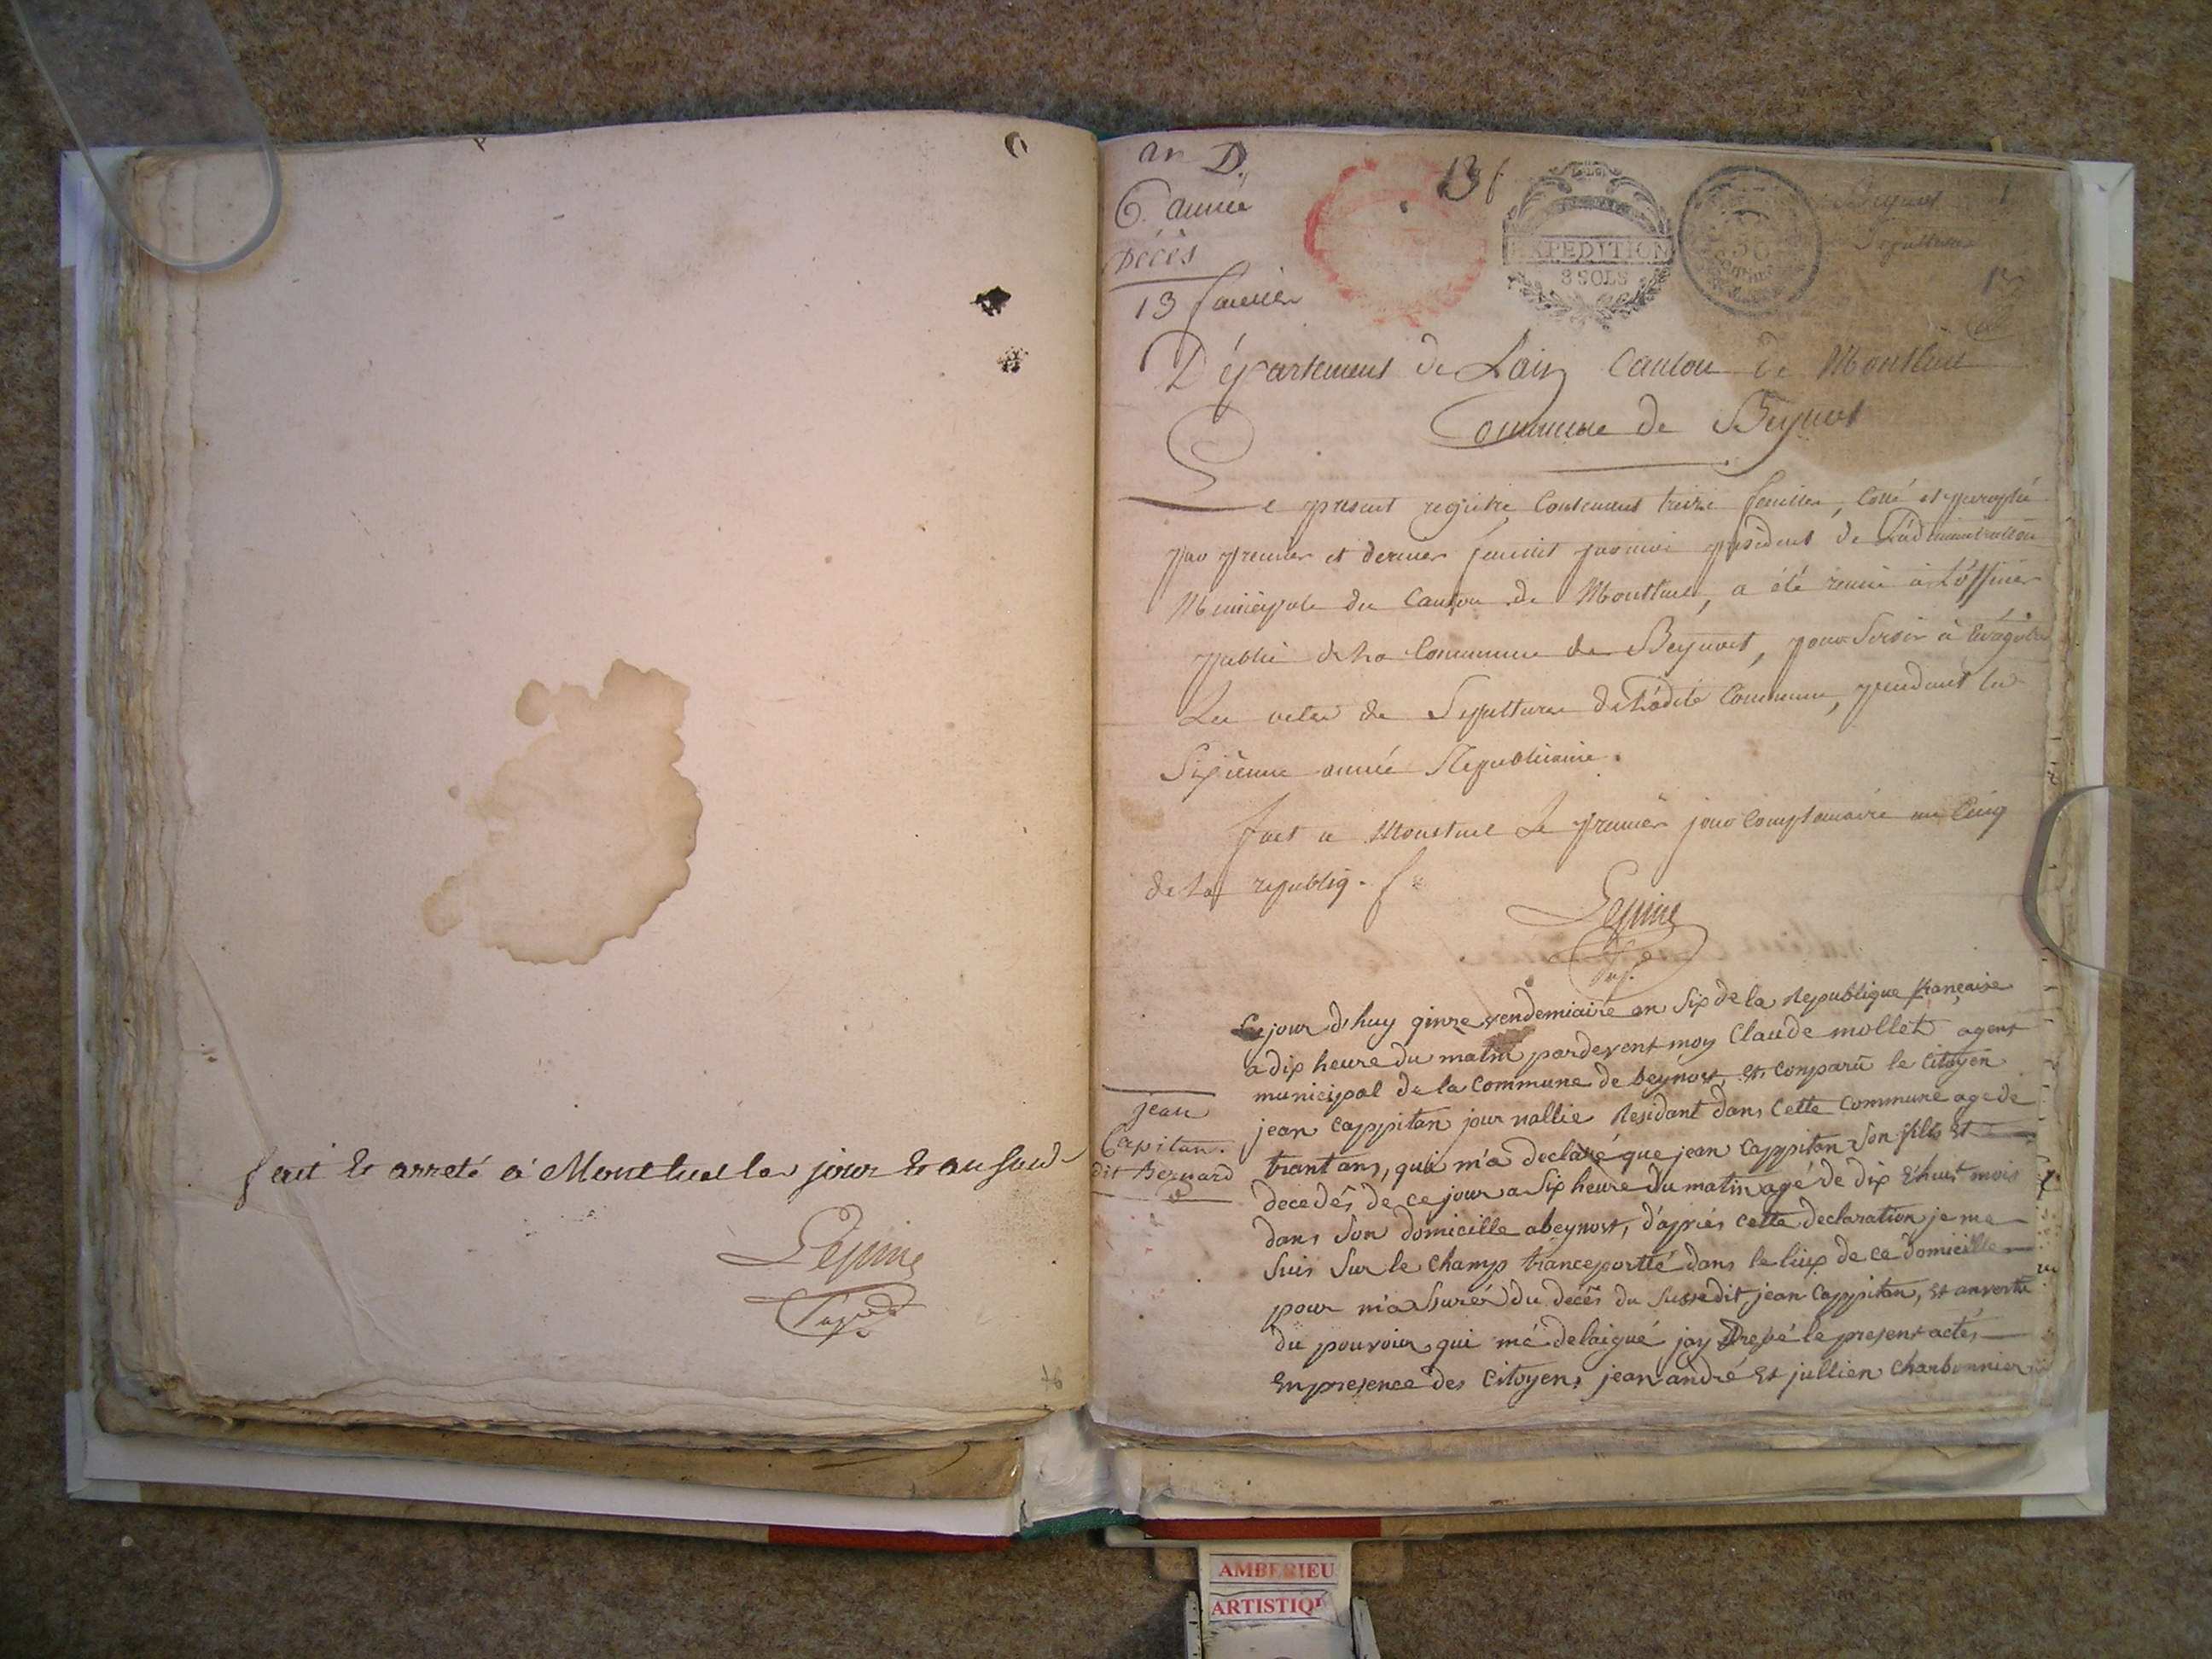 fait & arreté á Montluel les jour & an susd
Lepine
76
an D.
6. année
Décès
13 feuilles
131
EXPEDITION
3 SOLS
50
centimes
Beynost
Sepultures
1
13
Département de Lain Canton de Montluel
Commune de Beynost
Le present registre, Contenant treize feuilles, Cotté et paraphé
par premier et dernier feuillet par moi président de L'administration
Municipale du Canton de Montluel, a été remis à L'officier
public de La Commune de Beynost, pour Servir à
Les actes de Sepultures de Ladite Commune, pendant la
Sixieme année Republicaine.
fait a Montluel Le premier jour Complemaire an Cinq
de La republiq.
Lepine
Ce jour d'huy qinze vendemiaire an Six de la Republique française
a dix heure du matin pardevent moy Claude mollet agent
municipal de la Commune de beynost, est comparu le Citoyen
jean cappitan journallie Residant dans Cette Commune age de
trant ans, qui m'a declaré que jean cappitan Son fils est
decedés de ce jour a Six heure du matin agé de dix & huit mois
dans Son domicille a beynost, d'aprés cette declaration je me
Suis Sur le Champ tranceportté dans le liux de ce domicille
pour m'aSsurér du decés du Sussedit jean Cappitan, et anvertu
du pouvoir qui mé delaigué jay Dresé le present actes
En presence des Citoyens jean andré Et jullien Charbonnier
jean
Capitan.
dit Bernard
AMBERIEU
ARTISTIQU